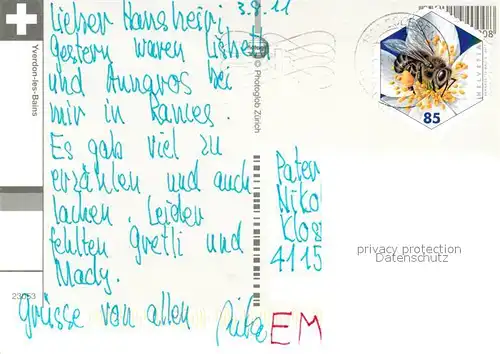 3.9.11
Lieber Hansheiri,
gestern waren Lisbeth
und Annarös bei
mir in Rances.
Es gab viel zu
erzählen und auch
lachen. Leider
fehlten Gretli und
Mady.
Grüsse von allen
EM
Pater
Niko
Klos
4115
privacy protection
Datenschutz
Yverdon-les-Bains
© Photoglob Zürich
23053
85
HELVETIA